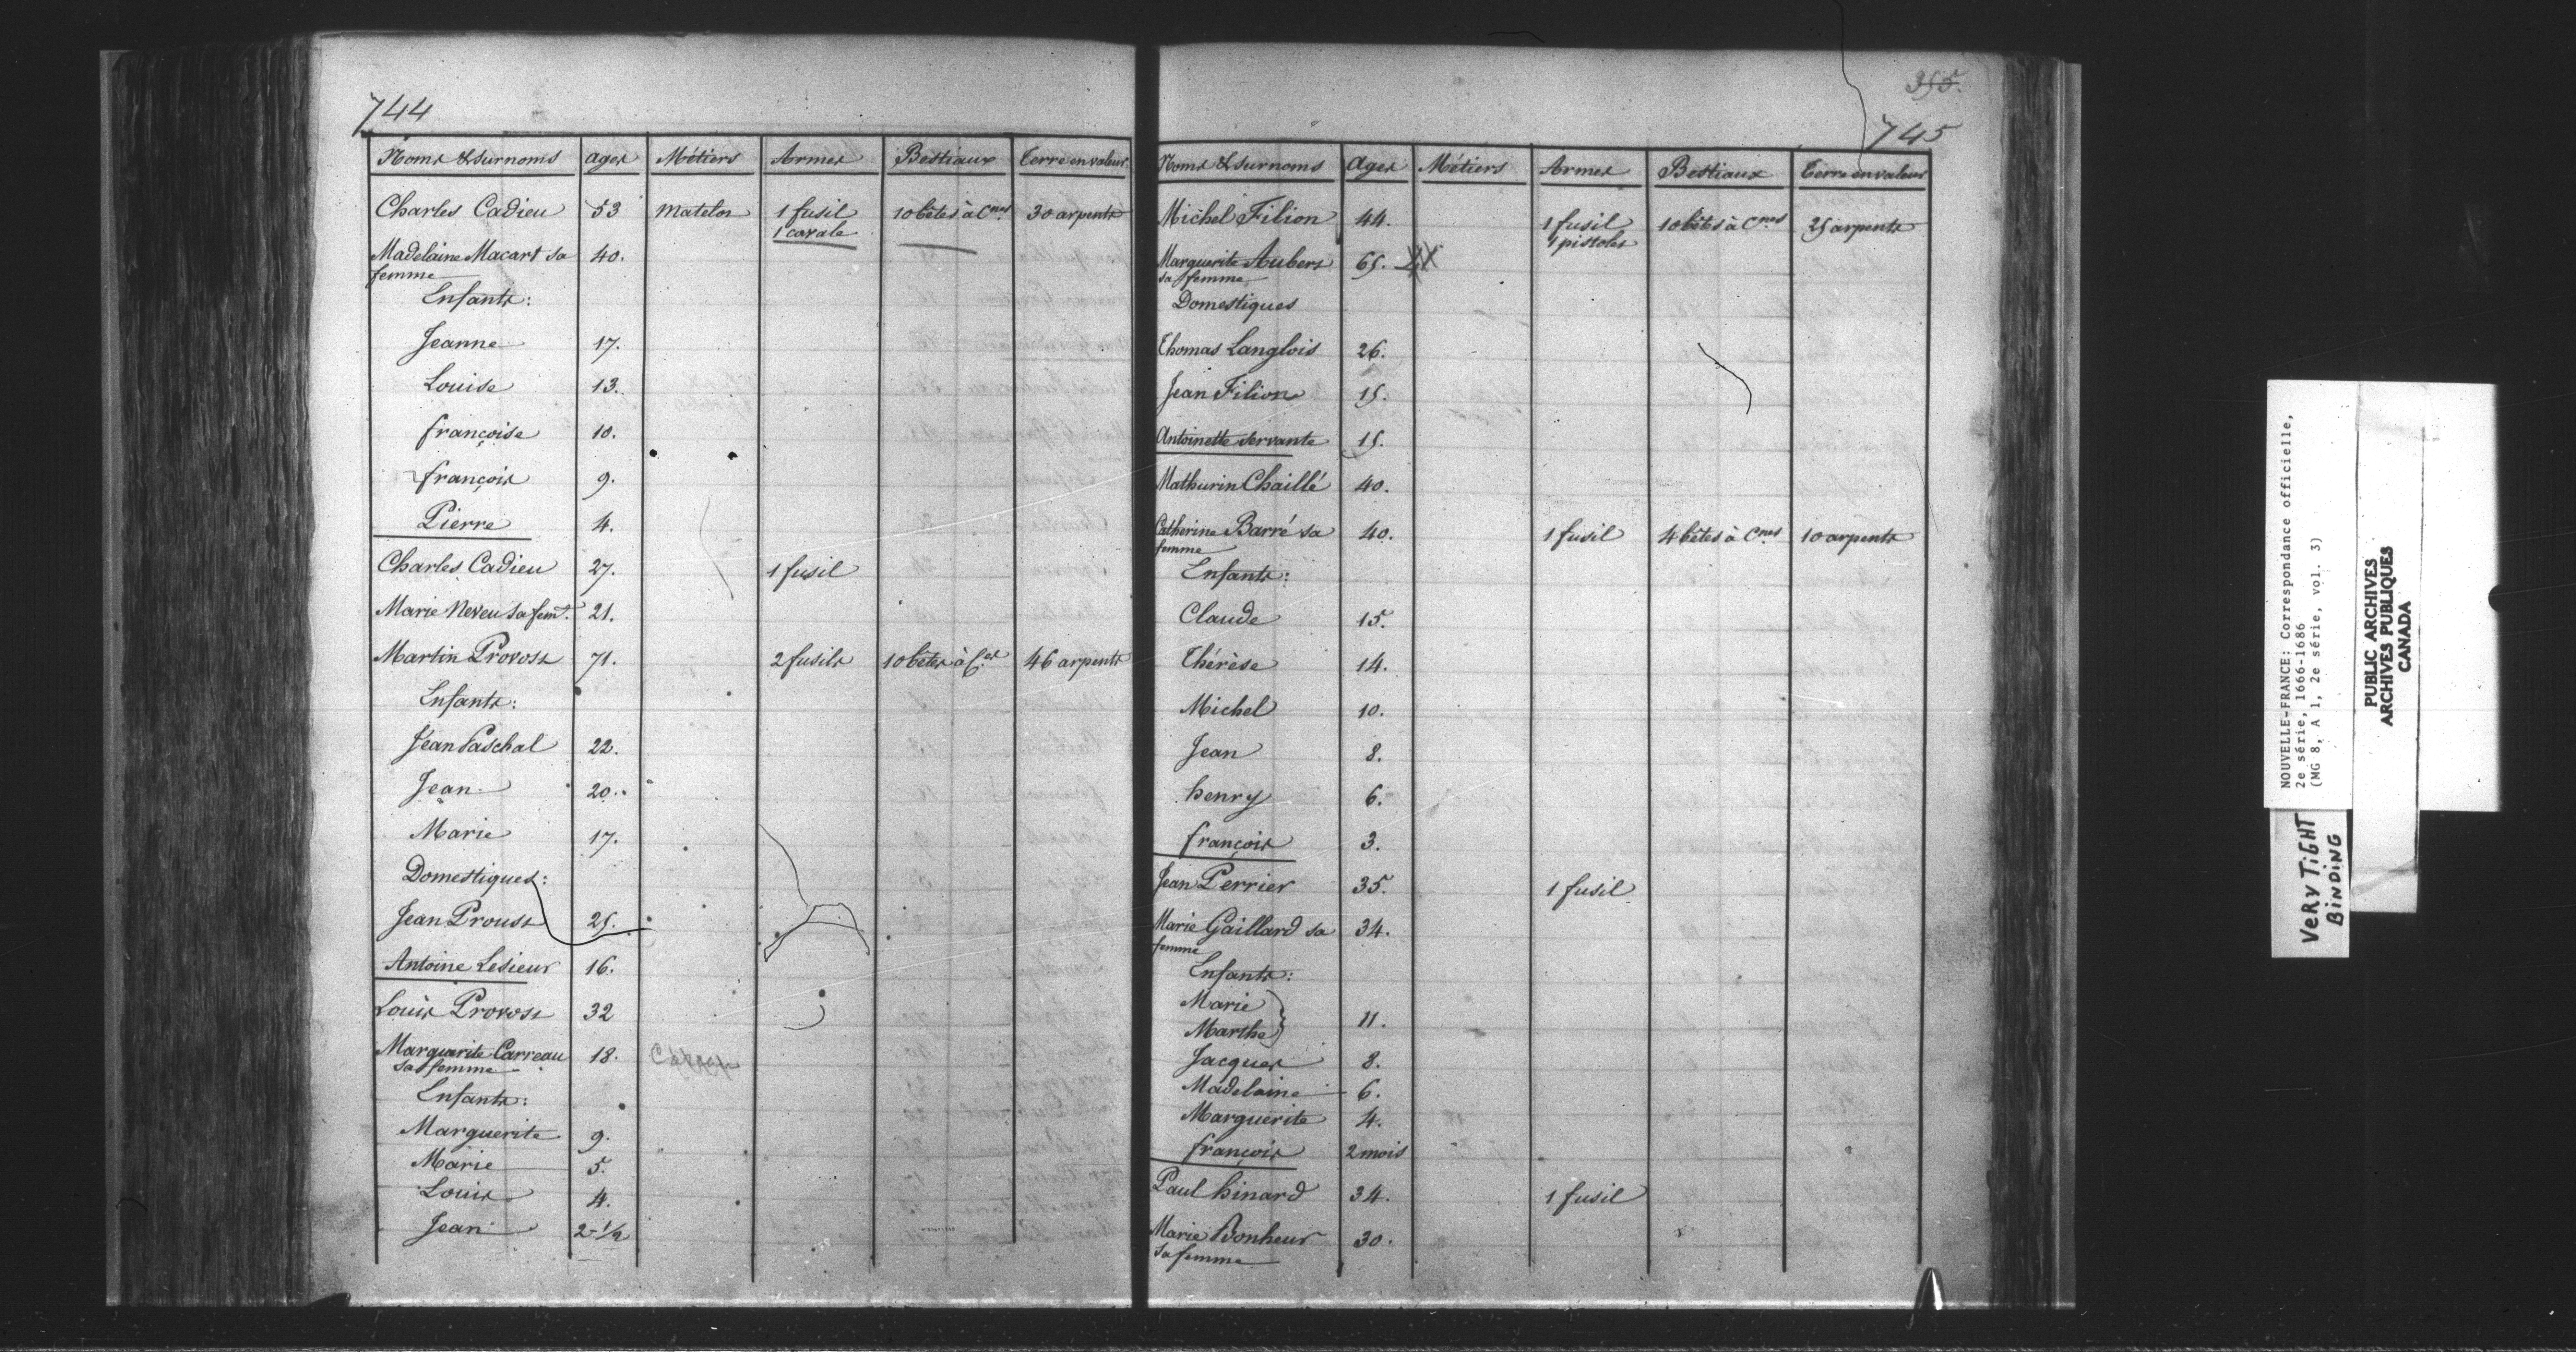 744
Noms & surnoms ages Métiers Armes Bestiaux Terre en valeur
Charles Cadieu 53 matelot 1 fusil 10 bêtes à Cnes 30 arpents
1 cavale
Madelaine Macart sa 40.
femme
Enfants:
Jeanne 17.
Louise 13.
françoise 10.
françois 9.
Pierre 4.
Charles Cadieu 27. 1 fusil
Marie Neveu sa feme. 21.
Martin Provost 71. 2 fusils 10 bêtes à C.es 46 arpents
Enfants:
Jean Paschal 22.
Jean 20.
Marie 17.
Domestiques:
Jean Proust 25.
Antoine Lesieur 16.
Louis Provost 32
Marguerite Carreau 18.
sa femme
Enfants:
Marguerite 9.
Marie 5.
Louis 4.
Jean 2-1/2
355.
745
Noms & surnoms Ages Métiers Armes Bestiaux Terre en valeur
Michel Filion 44. 1 fusil 10 bêtes à Cnes 25 arpents
1 pistolet
Marguerite Aubert 65.
sa femme
Domestiques
Thomas Langlois 26.
Jean Filion 15.
Antoinette servante 15.
Mathurin Chaillé 40.
Catherine Barré sa 40. 1 fusil 4 bêtes à Cnes 10 arpents
femme
Enfants:
Claude 15.
Thérèse 14.
Michel 10.
Jean 8.
henry 6.
françois 3.
Jean Perrier 35. 1 fusil
Marie Gaillard sa 34.
femme
Enfants:
Marie
Marthe } 11.
Jacques 8.
Madelaine 6.
Marguerite 4.
françois 2 mois
Paul hinard 34. 1 fusil
Marie Bonheur 30.
sa femme
NOUVELLE-FRANCE: Correspondance officielle,
2e série, 1666-1686
(MG 8, A 1, 2e série, vol. 3)
PUBLIC ARCHIVES
ARCHIVES PUBLIQUES
CANADA
VERY TiGHT
BiNDiNG